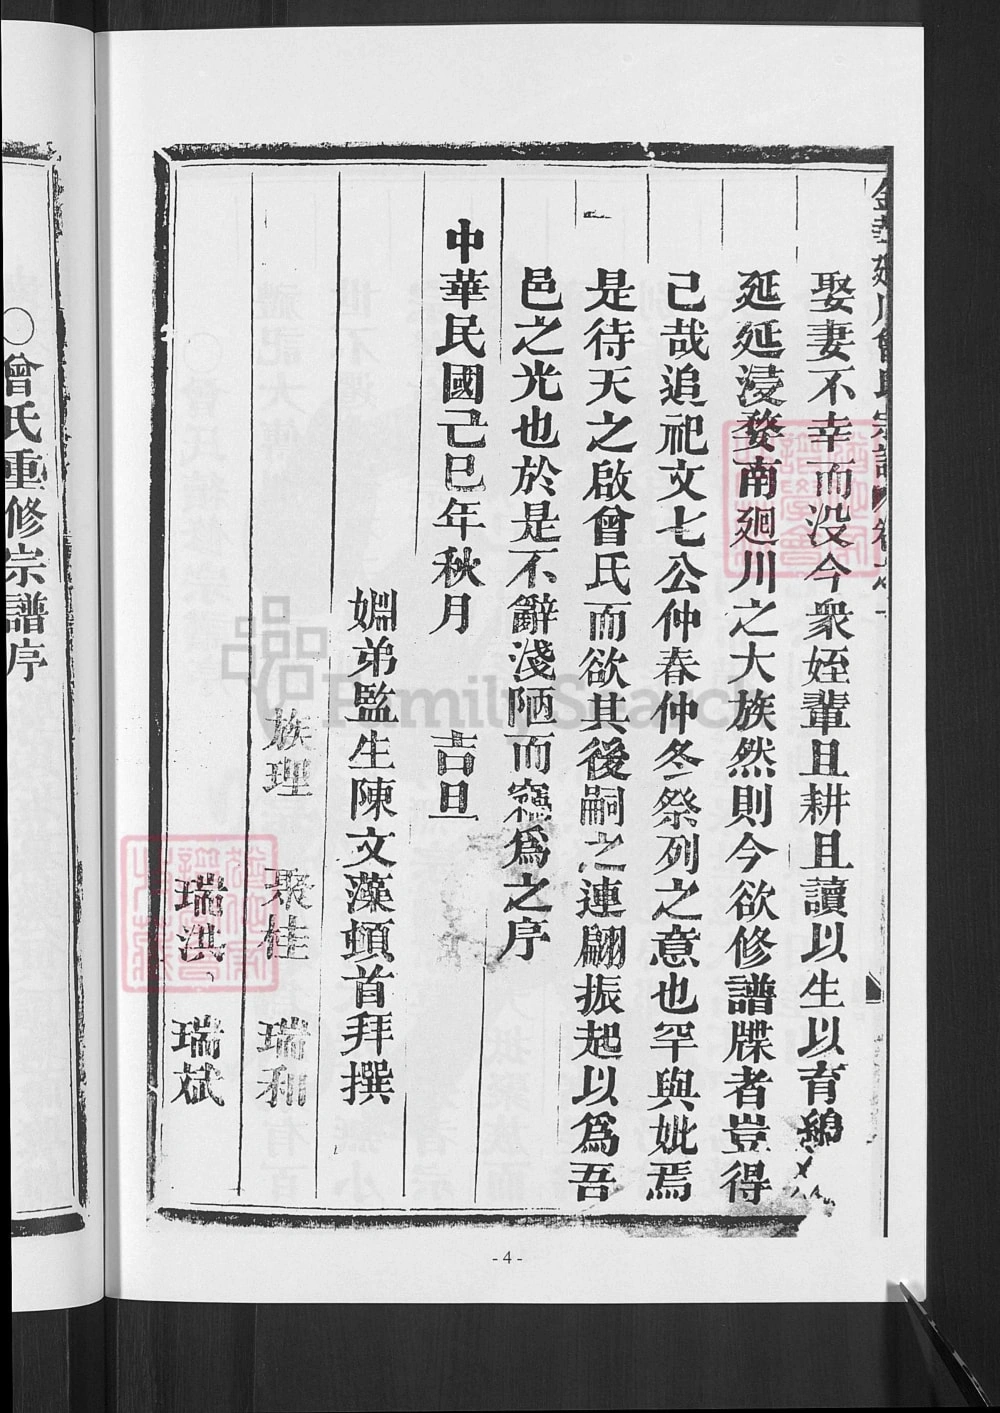 娶妻不幸而没今衆姪輩且耕且讀以生以育綿
延延浸婺南廻川之大族然則今欲修譜牒者豈得
己哉追祀文七公仲春仲冬祭列之意也罕與妣焉
是待天之啟曾氏而欲其後嗣之連翩振起以爲吾
邑之光也於是不辭淺陋而竊爲之序
中華民國己巳年秋月 吉旦
婣弟監生陳文藻頓首拜撰
族理 聚桂 瑞和
瑞淇 瑞斌
〇曾氏重修宗譜序
FamilySearch
- 4 -